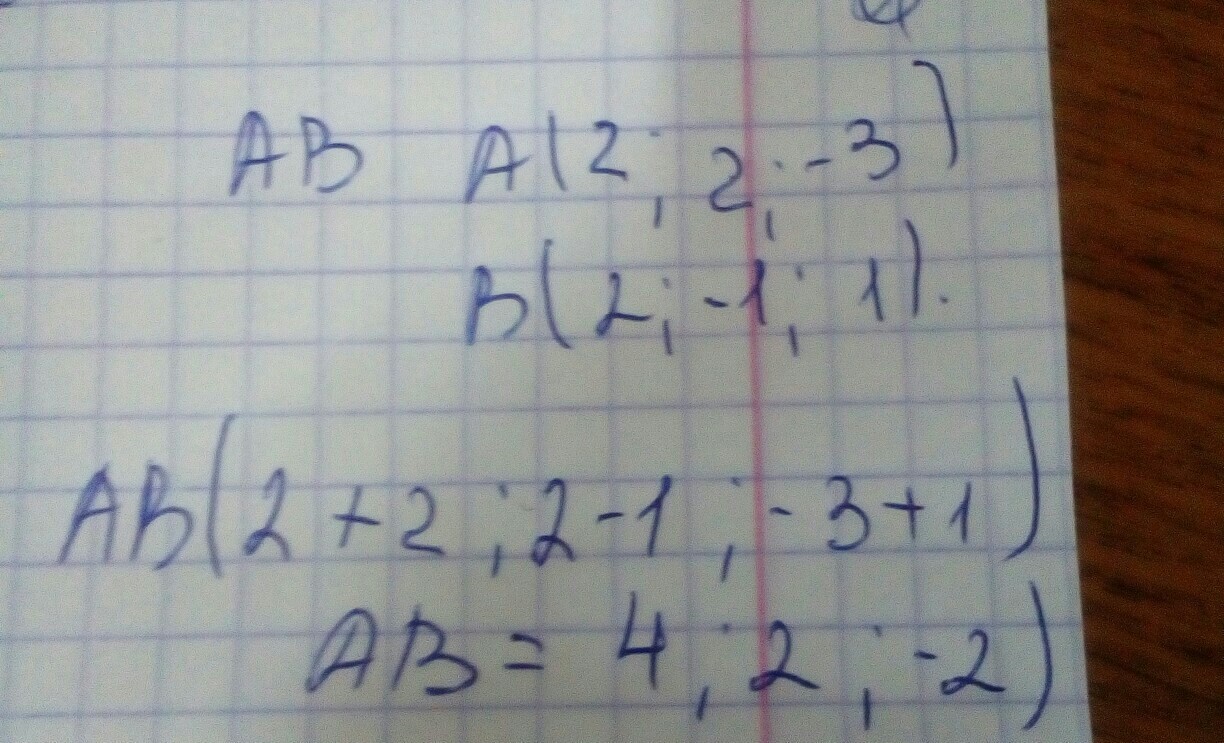 AB A(2; 2; -3)
B(2; -1; 1).
AB(2+2; 2-1; -3+1)
AB = 4; 2; -2)